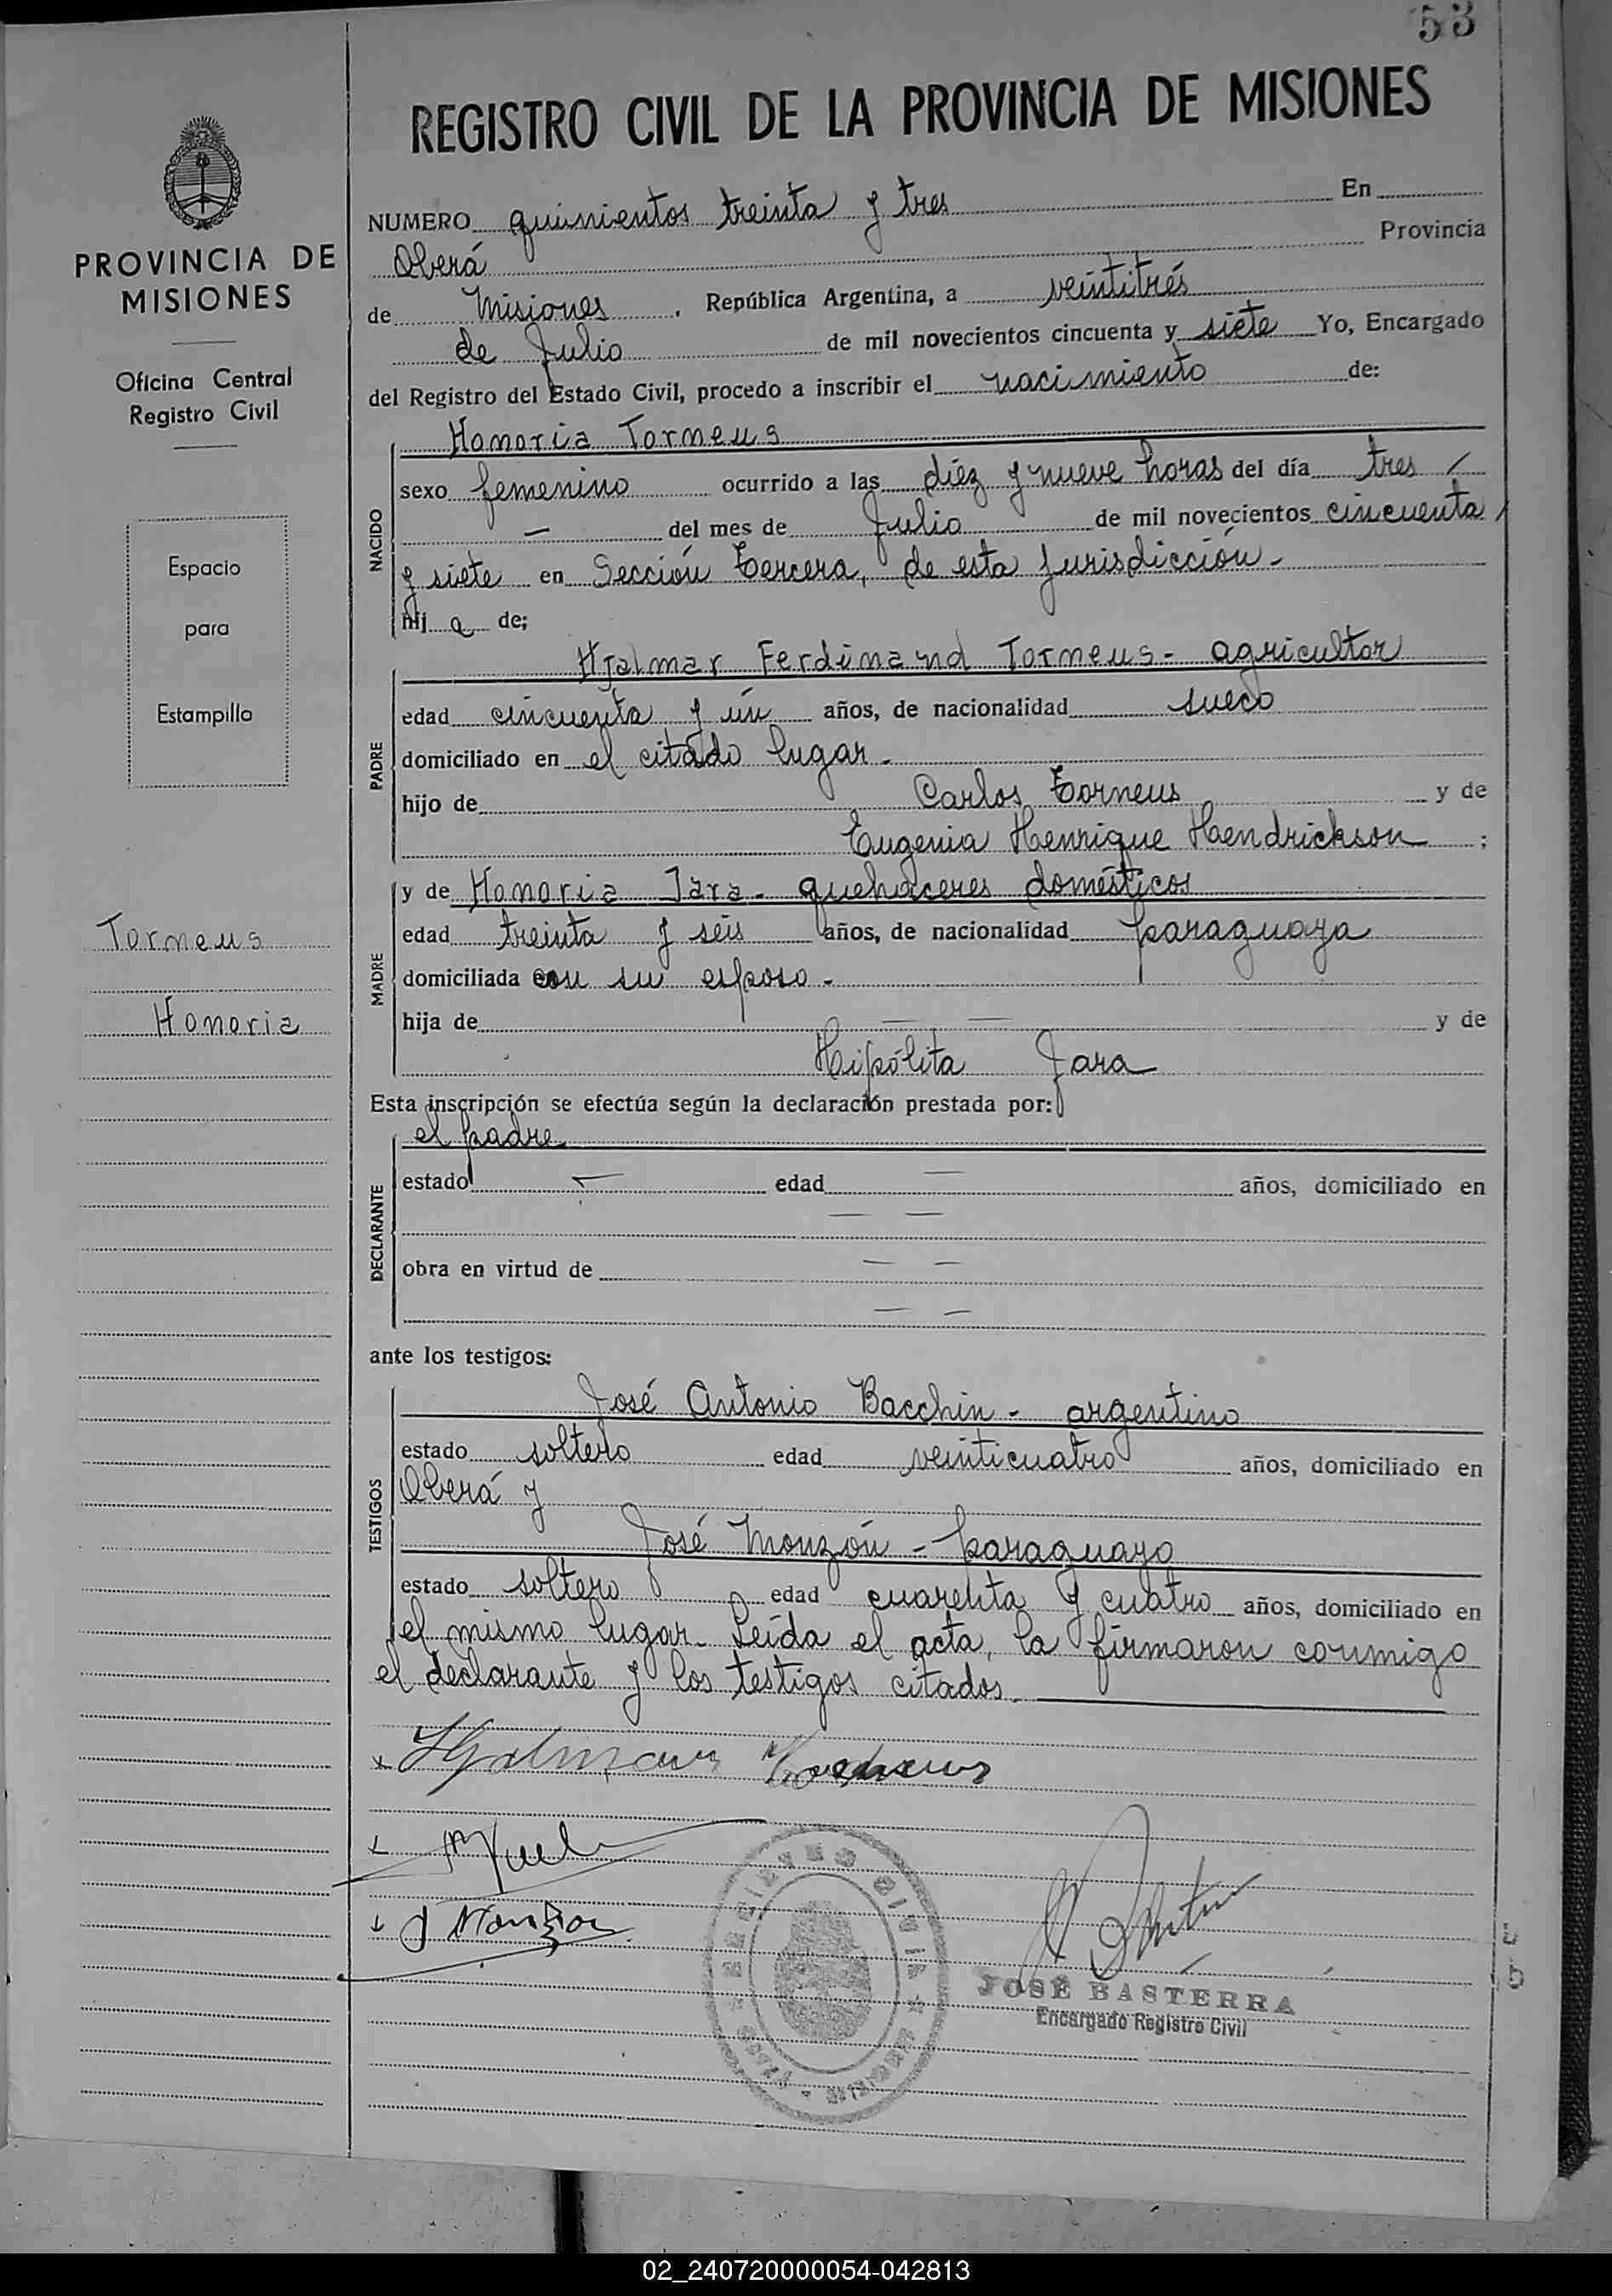 53
REGISTRO CIVIL DE LA PROVINCIA DE MISIONES
PROVINCIA DE
MISIONES
Oficina Central
Registro Civil
Espacio
para
Estampilla
Torneus
Honoria
NUMERO quinientos treinta y tres En
Oberá Provincia
de Misiones, República Argentina, a veintitrés
de Julio de mil novecientos cincuenta y siete Yo, Encargado
del Registro del Estado Civil, procedo a inscribir el nacimiento de:
NACIDO
Honoria Torneus
sexo femenino ocurrido a las diéz y nueve horas del día tres /
— del mes de Julio de mil novecientos cincuenta
y siete en Sección Tercera, de esta jurisdicción.-
hij a de;
PADRE
Hjalmar Ferdinand Torneus - agricultor
edad cincuenta y ún años, de nacionalidad sueco
domiciliado en el citado lugar.-
hijo de Carlos Torneus y de
Eugenia Henrique Haendrickson ;
MADRE
y de Honoria Jara - quehaceres domésticos
edad treinta y séis años, de nacionalidad paraguaya
domiciliada con su esposo.-
hija de — — y de
Hipólita Jara
Esta inscripción se efectúa según la declaración prestada por:
DECLARANTE
el padre
estado — edad — años, domiciliado en
— —
obra en virtud de — —
— —
ante los testigos:
TESTIGOS
José Antonio Bacchin - argentino
estado soltero edad veinticuatro años, domiciliado en
Oberá y
José Monzón - paraguayo
estado soltero edad cuarenta y cuatro años, domiciliado en
el mismo lugar. Leída el acta, la firmaron conmigo
el declarante y los testigos citados.
x Hjalmar Torneus
J Monzon
JOSÉ BASTERRA
Encargado Registro Civil
02_240720000054-042813